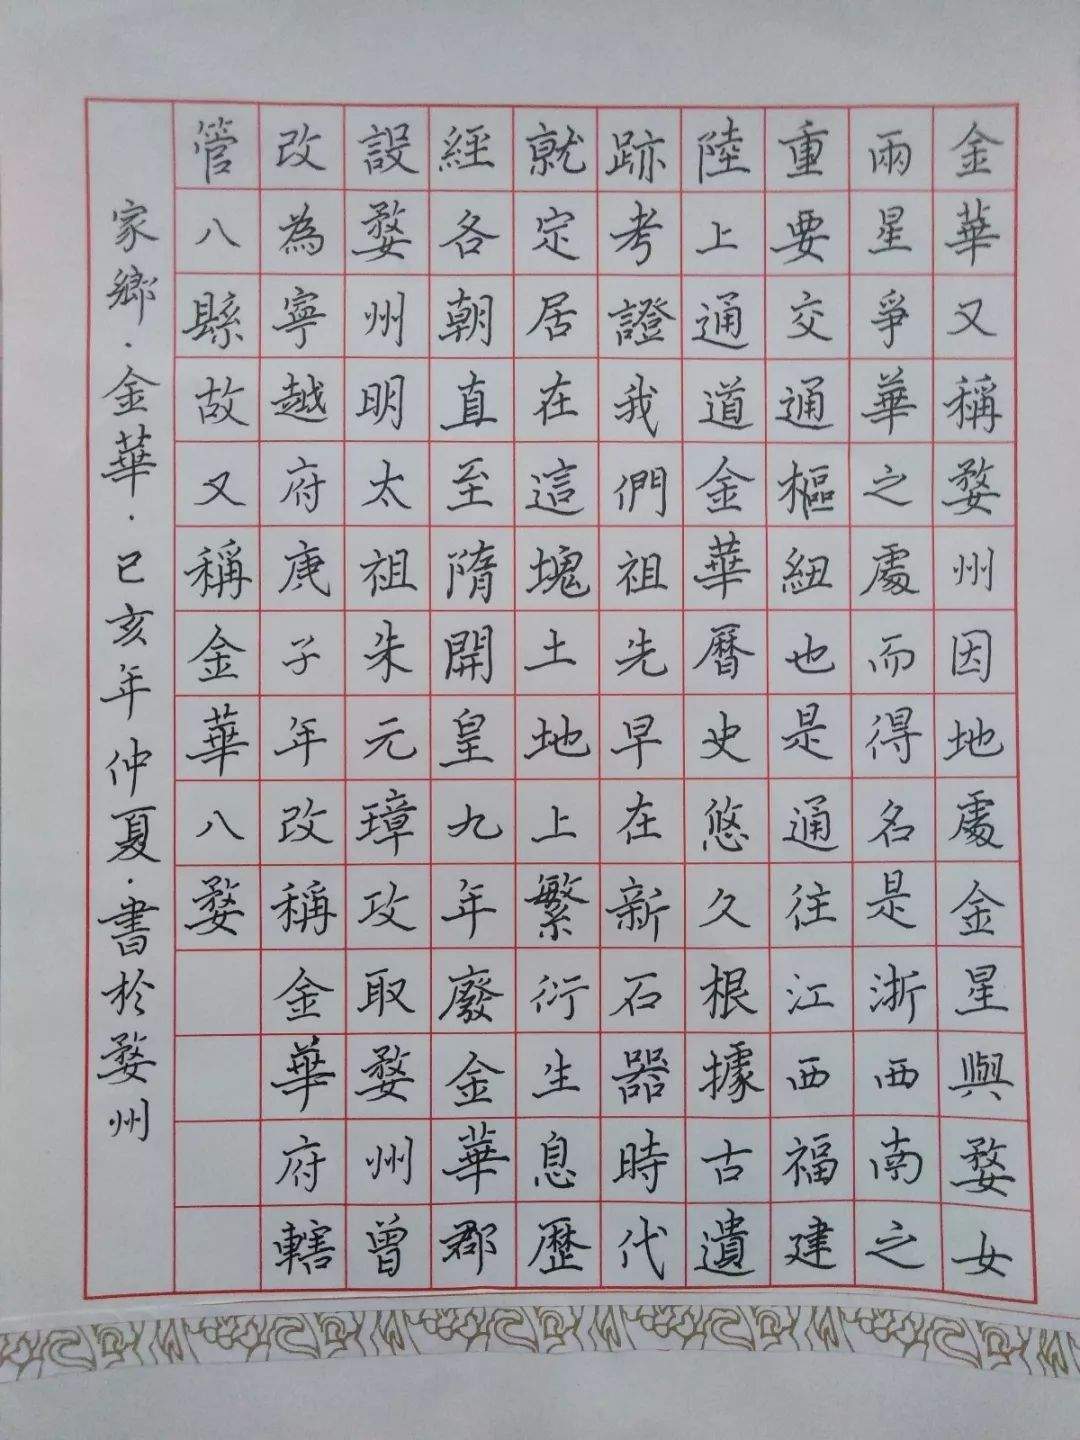 金華又稱婺州因地處金星與婺女
兩星爭華之處而得名是浙西南之
重要交通樞紐也是通往江西福建
陸上通道金華曆史悠久根據古遺
跡考證我們祖先早在新石器時代
就定居在這塊土地上繁衍生息歷
經各朝直至隋開皇九年廢金華郡
設婺州明太祖朱元璋攻取婺州曾
改為寧越府庚子年改稱金華府轄
管八縣故又稱金華八婺
家鄉·金華·己亥年仲夏·書於婺州